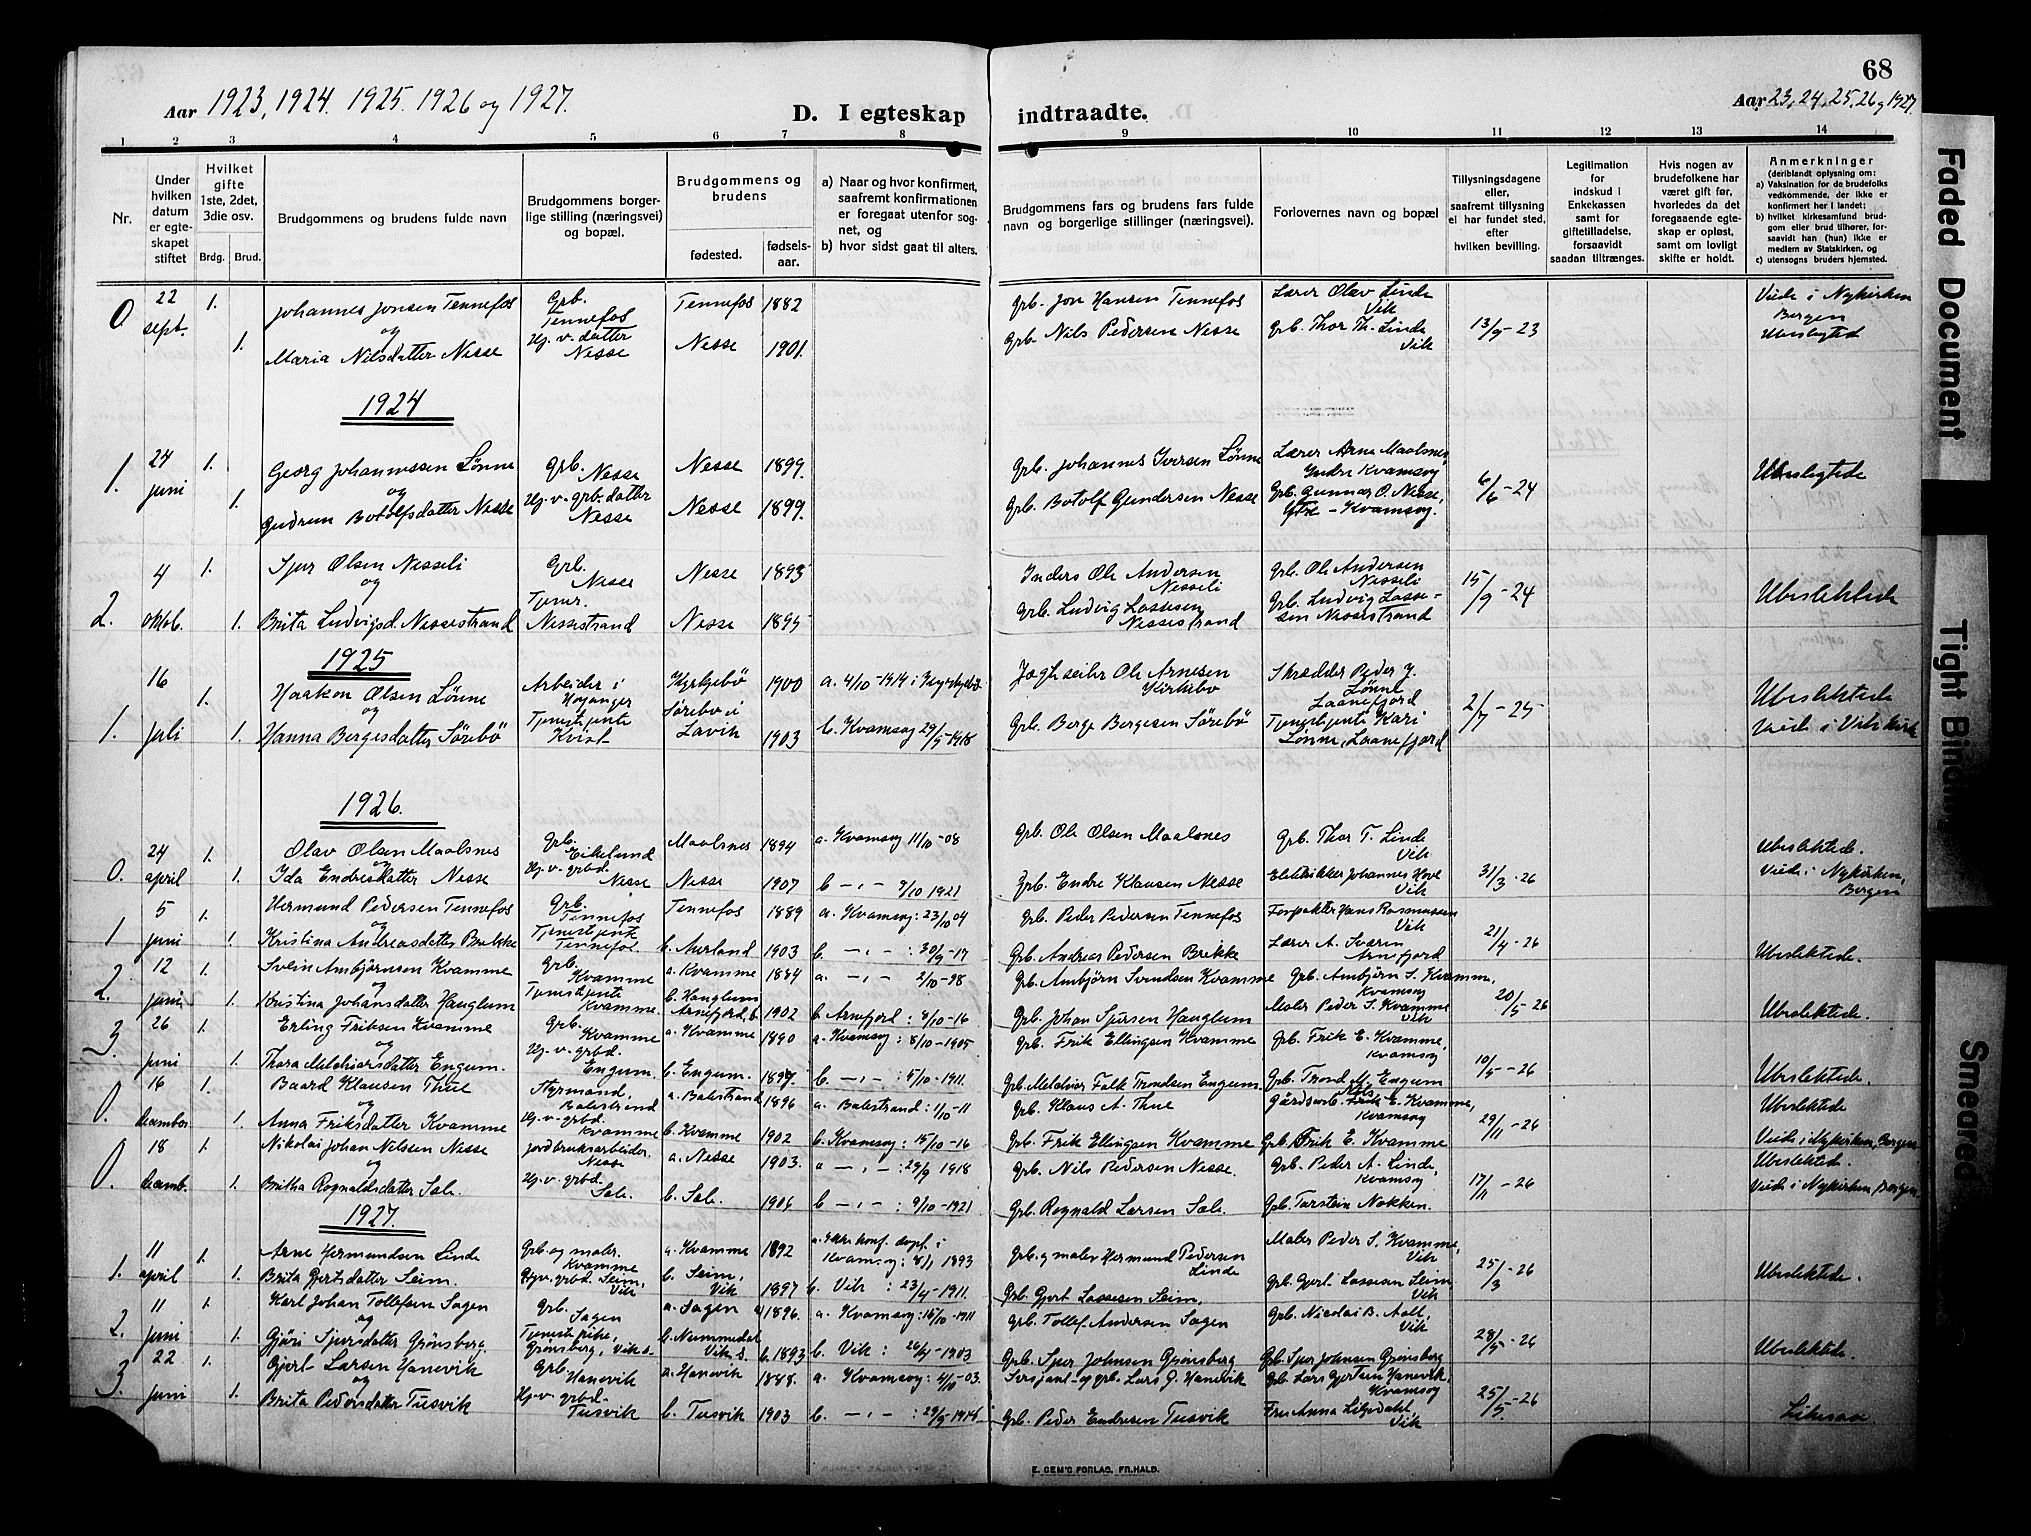 68
Aar 1923, 1924. 1925. 1926 og 1927.
D. I egteskap indtraadte.
Aar 23, 24, 25, 26 og 1927.
1 2 3 4 5 6 7 8 9 10 11 12 13 14
Nr.
Under hvilken datum er egteskapet stiftet
Hvilket gifte 1ste, 2det, 3die osv.
Brdg. Brud.
Brudgommens og brudens fulde navn
Brudgommens borgerlige stilling (næringsvei) og bopæl.
Brudgommens og brudens
fødested.
fødselsaar.
a) Naar og hvor konfirmert, saafremt konfirmationen er foregaat utenfor sognet, og
b) hvor sidst gaat til alters.
Brudgommens fars og brudens fars fulde navn og borgerlige stillinger (næringsvei).
Forlovernes navn og bopæl
Tillysningsdagene eller, saafremt tillysning ei har fundet sted, efter hvilken bevilling.
Legitimation for indskud i Enkekassen samt for giftetilladelse, forsaavidt saadan tiltrænges.
Hvis nogen av brudefolkene har været gift før, hvorledes da det foregaaende egteskap er opløst, samt om lovligt skifte er holdt.
Anmerkninger
(deriblandt oplysning om:
a) Vaksination for de brudefolks vedkommende, der ikke er konfirmert her i landet;
b) hvilket kirkesamfund brudgom eller brud tilhører, forsaavidt han (hun) ikke er medlem av Statskirken, og
c) utensogns bruders hjemsted.
0 22 sept. 1. Johannes Jonsen Tennefos Grb. Tennefos Tennefos 1882 Grb. Jon Hansen Tennefos Lærer Olav Linde Vik 13/9-23 Viede i Nykirken Bergen
og
1. Maria Nilsdatter Nesse Hj. v. datter Nesse Nesse 1901. Grb. Nils Pedersen Nesse Grb. Thor Th. Linde Vik Ubeslegted
1924
1. 24 juni 1. Georg Johannessen Lønne Grb. Nesse Nesse 1899. Grb. Johannes Iversen Lønne Lærer Arne Maalsnes, Indre Kvamsøy 6/6-24 Ubeslegtede
og
1. Gudrun Botolfsdatter Nesse Hj. v. grb. datter Nesse Nesse 1899. Grb. Botolf Gundersen Nesse Grb. Gunnar O. Nesse, Ytre-Kvamsøy.
2. 4 oktob. 1. Sjur Olsen Nesseli Grb. Nesse Nesse 1893 Inders Ole Andersen Nesseli Grb. Ole Andersen Nesseli 15/9-24 Ubeslektede
og
1. Brita Ludvigsd. Nessestrand Tjener. Nessestrand Nesse 1895 Grb. Ludvig Lassesen Nessestrand Grb. Ludvig Lassesen Nessestrand
1925
1. 16 juli 1. Haakon Olsen Lønne Arbeider i Høyanger Kyrkjebø 1900 a. 4/10-1914 i Kyrkjebø Ole Arnesen Kirkebø Skrædder Peder J. Lønne Laanefjord 2/7-25 Ubeslektede
og
1. Hanna Bergesdatter Sørebø Tjenestjente Kvist Sørebø i Lavik 1903 b. Kvamsøy 29/9-1918 Grb. Berge Bergesen Sørebø Tjenestjente Kari Lønne, Laanefjord Viede i Vik kirke
1926.
0. 24 april 1. Olav Olsen Maalsnes Grb. Eikelund Maalsnes 1894 a. Kvamsøy 11/10-08 Grb. Ole Olsen Maalsnes Grb. Thor T. Linde Vik 31/3-26 Ubeslektede.
og
1. Ida Endresdatter Nesse Hj. v. grbd. Nesse Nesse 1907 b -„- 9/10 1921 Grb. Endre Klausen Nesse Elektrikker Johannes Hove Vik Viede i Nykirken, Bergen
1 5 juni 1. Hermund Pedersen Tennefos Grb. Tennefos Tennefos 1889 a. Kvamsøy: 23/10 04 Grb. Peder Pedersen Tennefos Forpakter Hans Rasmussen Vik 21/4-26
og
1. Kristina Andreasdatter Brekke Tjenestjente Tennefos. b. Aurland 1903 b. -„- : 30/9-17 Grb. Andreas Pedersen Brekke Lærer A. Sværen Arnefjord Ubeslektede.
2. 12 juni 1. Svein Ambjørnsen Kvamme Grb. Kvamme a. Kvamme 1884 a. -„- 2/10-98 Grb. Ambjørn Svendsen Kvamme Grb. Ambjørn S. Kvamme, Kvamsøy 20/5-26
og
1. Kristina Johansdatter Hauglum Tjenestjente Kvamme. b. Hauglum Arnefjord, 1902 b. Arnefjord: 8/10-16 Grb. Johan Sjursen Hauglum Maler Peder S. Kvamme Vik Ubeslektede.
3. 26 juni 1. Erling Eriksen Kvamme Grb. Kvamme a. Kvamme 1890 a. Kvamsøy: 8/10-1905 Grb. Erik Ellingsen Kvamme Grb. Erik E. Kvamme, Kvamsøy 10/5-26
og
1. Thora Melchiorsdatter Engum. Hj. v. grbd. Engum. b. Engum. 1897. b. -„- : 5/10-1911. Grb. Melchior Falk Trondsen Engum Grb. Trond M. Engum Ubeslektede.
0. 16 december 1. Baard Klausen Thue Styrmand, Balestrand a. Balestrand 1896 a. Balestrand: 1/10-11 Grb. Klaus A. Thue Gårdsarb. Nils E. Kvamme, Kvamsøy 29/11-26 Ubeslektede
og
1. Anna Eriksdatter Kvamme Hj. v. grbd. Kvamme b. Kvamme 1902 b. Kvamsøy: 15/10-16 Grb. Erik Ellingsen Kvamme Grb. Erik E. Kvamme Viede i Nykirken, Bergen
0. 18 decemb. 1. Nikolai Johan Nilsen Nesse Jordbruksarbeider. Nesse a. Nesse 1903. a -„- : 29/9 1918 Grb. Nils Pedersen Nesse. Grb. Peder A. Linde, Kvamsøy 17/11-26 Ubeslektede.
og
1. Britha Rognaldsdatter Sale. Hj. v. grbd. Sale. b. Sale. 1906 b -„- : 9/10-1921 Grb. Rognald Larsen Sale. Grb. Torstein Nokken. Viede i Nykirken, Bergen,
1927.
1. 11 april 1. Arne Hermundsen Linde Grb. og maler. Kvamme a. Kvamme 1892 a. Ikke konf. døpt i Kvamsøy: 8/1 1893 Grb. og maler Hermund Pedersen Linde Maler Peder S. Kvamme, Vik 25/3-26
1. Brita Gjertsdatter Seim. Hjv. grbd. Seim, Vik b. Seim, Vik 1897 b. Vik: 23/4-1911. Grb. Gjert Lassesen Seim. Grb. Gjert Lassesen Seim Vik Ubeslektede.
2. 11 juni 1. Karl Johan Tollefsen Sagen Grb. Sagen a. Sagen 1896. a. Kvamsøy: 15/10-1911 Grb. Tollef Andersen Sagen Grb. Nicolai B. Vik 28/5-26
og
1. Gjøri Sjursdatter Grønsberg. Tjenestpike, Grønsberg, Vik s. b. Nummedal Vik s. b. 1893 b. Vik: 26/4-1903 Grb. Sjur Johnsen Grønsberg Grb. Sjur Johnsen Grønsberg Ubeslektede.
3. 22 juni 1. Gjert Larsen Hanevik Grb. Hanevik a. Hanevik 1888. a. Kvamsøy: 4/10-03. Sersjant- og grb. Lars G. Hanevik Grb. Lars Gjertsen Hanevik, Kvamsøy 25/5-26
og
1. Brita Pedersdatter Tusvik Hj. v. grbd. Tusvik b. Tusvik 1903 b. -„- : 29/9-1918 Grb. Peder Endresen Tusvik Fru Anna Likedahl Vik Likesaa
E. SEM'S FORLAG, FR.HALD.
Faded Document
Tight Binding
Smeared